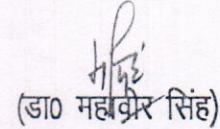 (डा० महावीर सिंह)